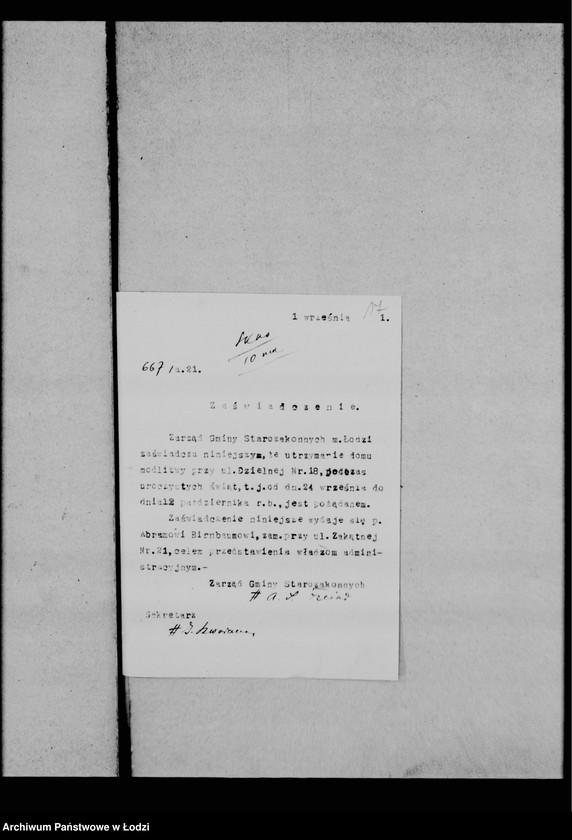 17
1 września 1.
10 mk
667/a.21.
Zaświadczenie.
Zarząd Gminy Starozakonnych m.Łodzi
zaświadcza niniejszym, że utrzymanie domu
modlitwy przy ul.Dzielnej Nr.18, podczas
uroczystych świąt, t.j.od dn.24 września do
dnia12 października r.b., jest pożądanem.
Zaświadczenie niniejsze wydaje się p.
Abramowi Birnbaumowi, zam.przy ul. Zakątnej
Nr.21, celem przedstawienia władzom admini-
stracyjnym.-
Zarząd Gminy Starozakonnych
Sekretarz
Archiwum Państwowe w Łodzi